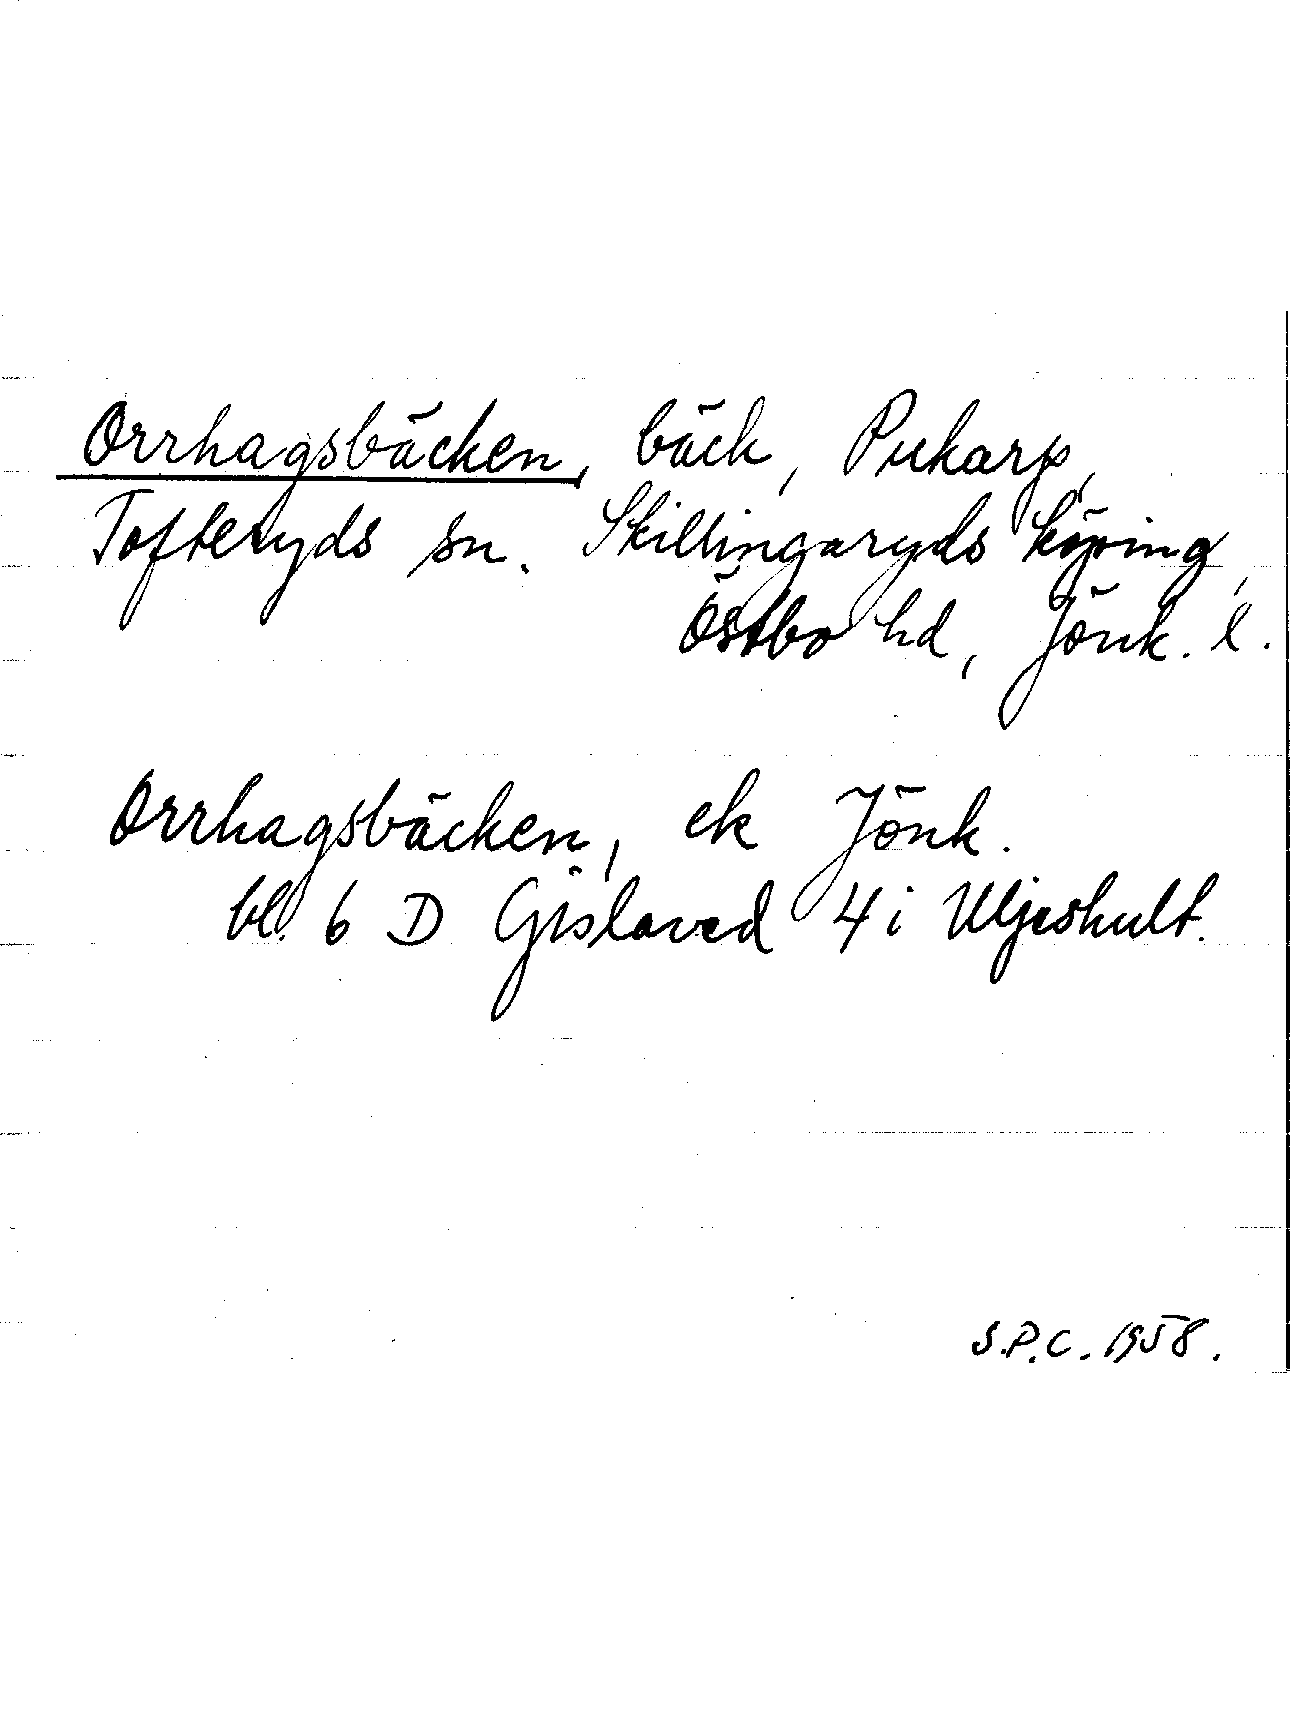 Orrhagsbäcken, bäck, Pukarp,
Tofteryds sn. Skillingaryds köping,
Östbo hd, Jönk. l.
Orrhagsbäcken, ek Jönk.
bl. 6 D Gislaved 4 i Uljeshult.
S.P.C. 1958.